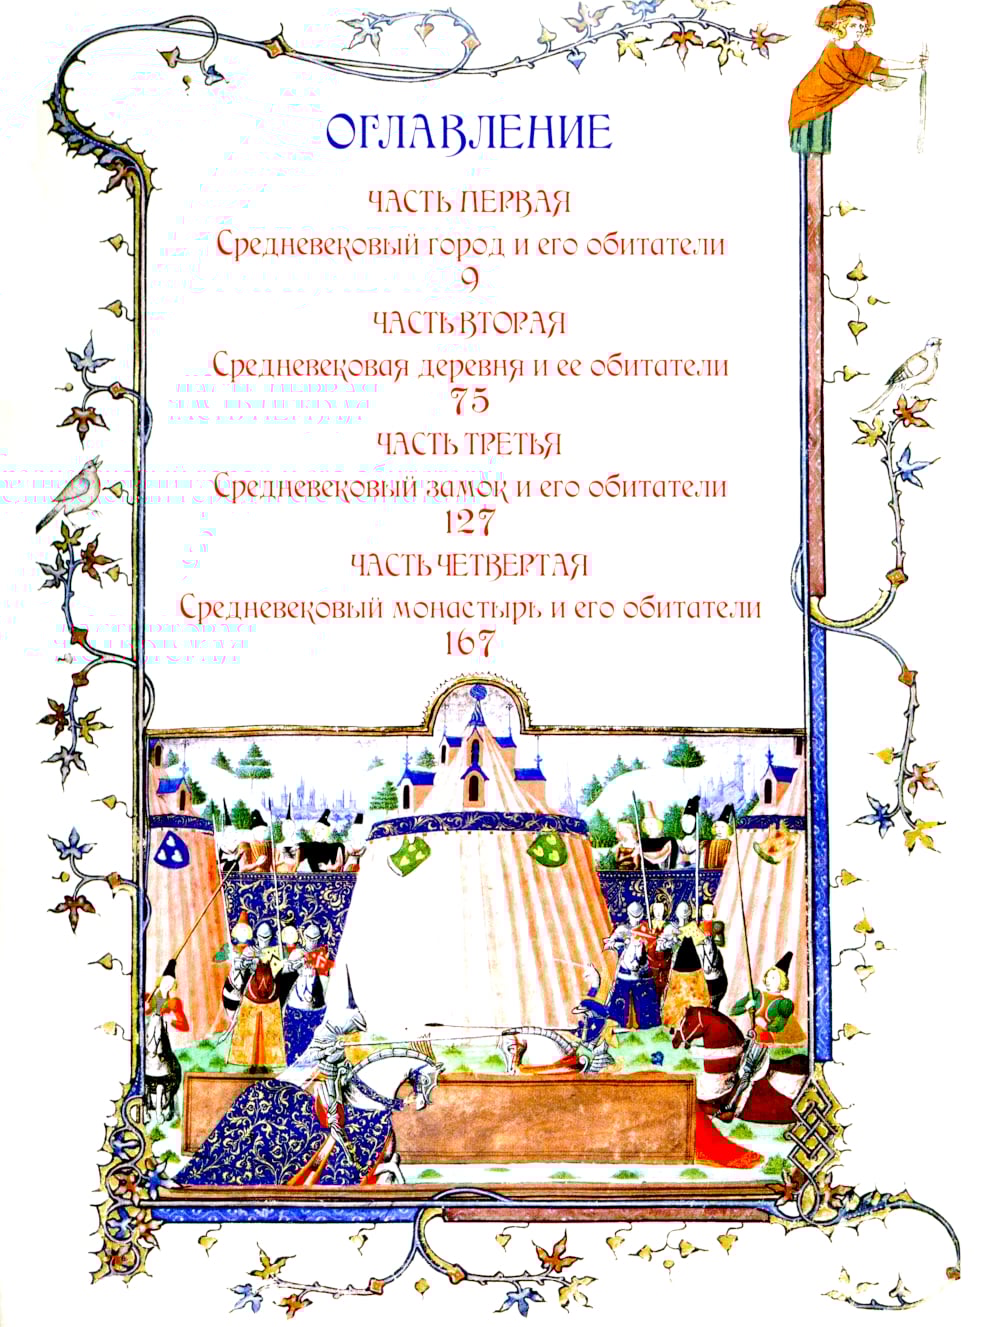 ОГЛАВЛЕНИЕ
ЧАСТЬ ПЕРВАЯ
Средневековый город и его обитатели
9
ЧАСТЬ ВТОРАЯ
Средневековая деревня и ее обитатели
75
ЧАСТЬ ТРЕТЬЯ
Средневековый замок и его обитатели
127
ЧАСТЬ ЧЕТВЕРТАЯ
Средневековый монастырь и его обитатели
167